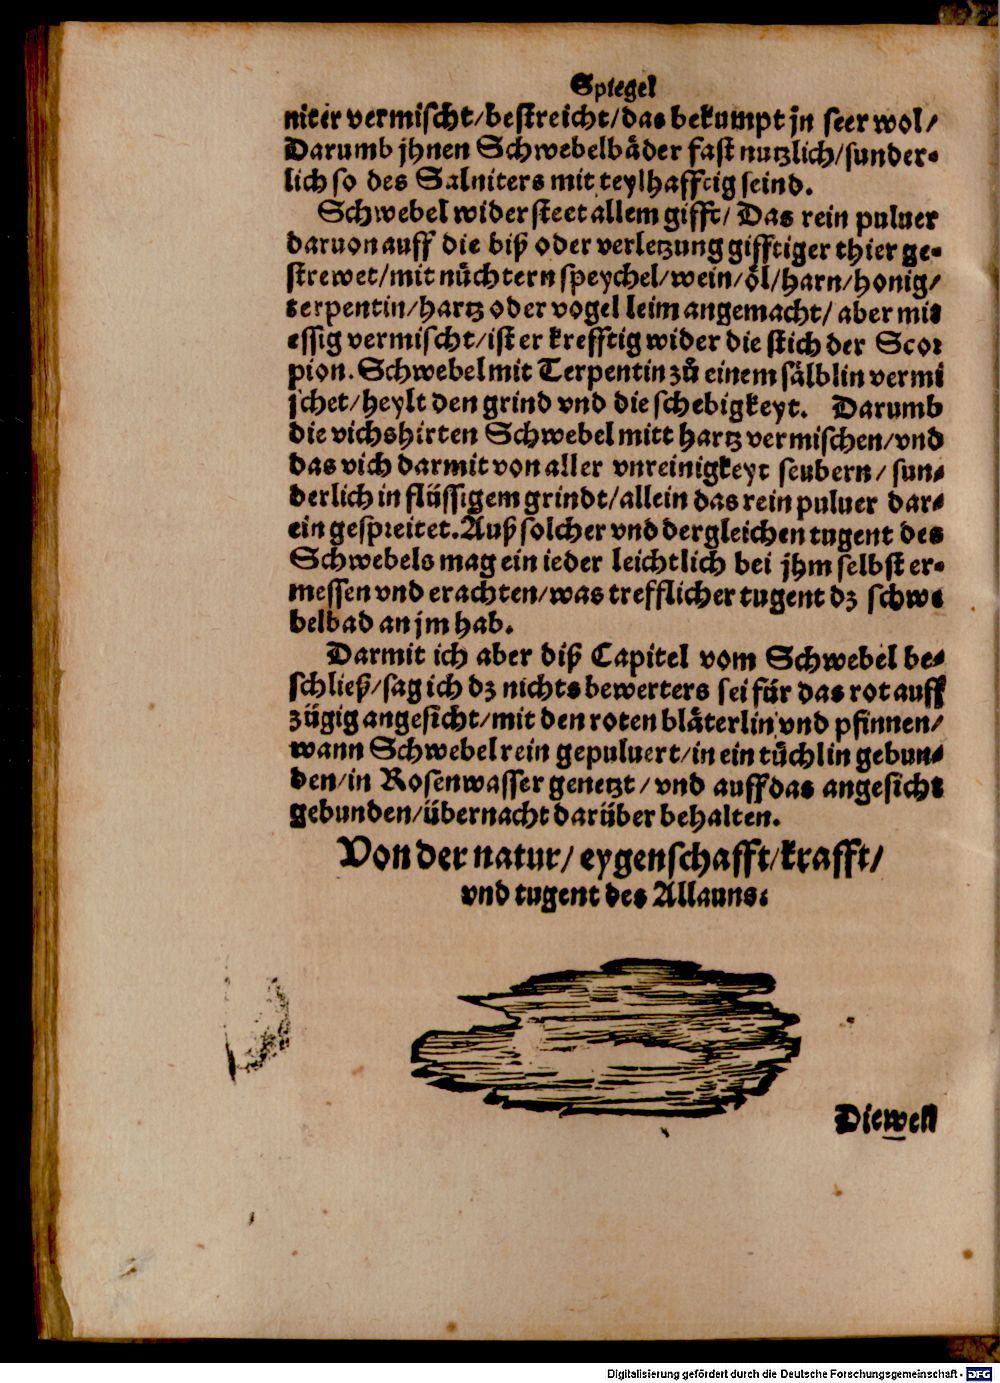 Spiegel
niter vermischt/bestreicht/das bekumpt jn seer wol/
Darumb jhnen Schwebelbäder fast nutzlich/sunder-
lich so des Salniters mit teylhafftig seind.
Schwebel wider steet allem gifft/ Das rein puluer
daruon auff die biß oder verletzung gifftiger thier ge-
strewet/mit nüchtern speychel/wein/öl/harn/honig/
terpentin/hartz oder vogel leim angemacht/ aber mit
essig vermischt/ist er krefftig wider die stich der Scor
pion. Schwebel mit Terpentin zů einem sälblin vermi
schet/heylt den grind vnd die schebigkeyt. Darumb
die vichshirten Schwebel mitt hartz vermischen/vnd
das vich darmit von aller vnreinigkeyt seubern/ sun-
derlich in flüssigem grindt/allein das rein puluer dar-
ein gespreitet. Auß solcher vnd dergleichen tugent des
Schwebels mag ein ieder leichtlich bei jhm selbst er-
messen vnd erachten/was trefflicher tugent dz schwe
belbad an jm hab.
Darmit ich aber diß Capitel vom Schwebel be-
schließ/sag ich dz nichts bewerters sei für das rot auff
zügig angesicht/mit den roten bläterlin vnd pfinnen/
wann Schwebel rein gepuluert/in ein tüchlin gebun-
den/in Rosenwasser genetzt/ vnd auff das angesicht
gebunden/übernacht darüber behalten.
Von der natur/ eygenschafft/krafft/
vnd tugent des Allauns:
Dieweil
Digitalisierung gefördert durch die Deutsche Forschungsgemeinschaft - DFG